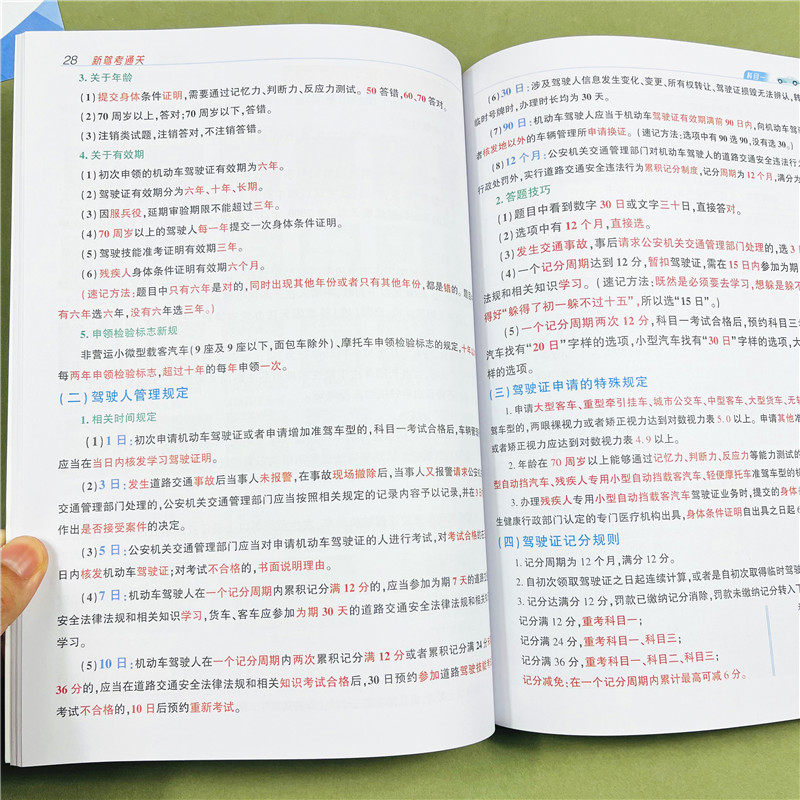 28 新驾考通关
3. 关于年龄
(1) 提交身体条件证明,需要通过记忆力、判断力、反应力测试。50 答错,60、70 答对。
(2) 70 周岁以上,答对;70 周岁以下,答错。
(3) 注销类试题,注销答对,不注销答错。
4. 关于有效期
(1) 初次申领的机动车驾驶证有效期为六年。
(2) 驾驶证有效期分为六年、十年、长期。
(3) 因服兵役,延期审验期限不能超过三年。
(4) 70 周岁以上的驾驶人每一年提交一次身体条件证明。
(5) 驾驶技能准考证明有效期三年。
(6) 残疾人身体条件证明有效期六个月。
(速记方法:题目中只有六年是对的,同时出现其他年份或者只有其他年份,都是错的。题目
有六年选六年,没有六年选三年。)
5. 申领检验标志新规
非营运小微型载客汽车(9 座及 9 座以下,面包车除外)、摩托车申领检验标志的规定,十年
每两年申领检验标志,超过十年的每年申领一次。
(二) 驾驶人管理规定
1. 相关时间规定
(1) 1 日:初次申请机动车驾驶证或者申请增加准驾车型的,科目一考试合格后,车辆管
应当在当日内核发学习驾驶证明。
(2) 3 日:发生道路交通事故后当事人未报警,在事故现场撤除后,当事人又报警请求公安
交通管理部门处理的,公安机关交通管理部门应当按照相关规定的记录内容予以记录,并在 3
作出是否接受案件的决定。
(3) 5 日:公安机关交通管理部门应当对申请机动车驾驶证的人进行考试,对考试合格的在
日内核发机动车驾驶证;对考试不合格的,书面说明理由。
(4) 7 日:机动车驾驶人在一个记分周期内累积记分满 12 分的,应当参加为期 7 天的道路交
安全法律法规和相关知识学习,货车、客车应参加为期 30 天的道路交通安全法律法规和相关知
学习。
(5) 10 日:机动车驾驶人在一个记分周期内两次累积记分满 12 分或者累积记分满 24 分
36 分的,应当在道路交通安全法律法规和相关知识考试合格后,30 日预约参加道路驾驶技能
考试不合格的,10 日后预约重新考试。
科目一
(6) 30 日:涉及驾驶人信息发生变化、变更、所有权转让、驾驶证损毁无法辨认,
临时号牌时,办理时长均为 30 天。
(7) 90 日:机动车驾驶人应当于机动车驾驶证有效期满前 90 日内,向机动车驾
者核发地以外的车辆管理所申请换证。(速记方法:选项中有 90 选 90,没有选 30。)
(8) 12 个月:公安机关交通管理部门对机动车驾驶人的道路交通安全违法行为
行政处罚外,实行道路交通安全违法行为累积记分制度,记分周期为 12 个月,满分为
2. 答题技巧
(1) 题目中看到数字 30 日或文字三十日,直接答对。
(2) 选项中有 12 个月,直接选。
(3) 发生交通事故,事后请求公安机关交通管理部门处理的,选 3
(4) 一个记分周期达到 12 分,暂扣驾驶证,需在 15 日内参加为期
法规和相关知识学习。(速记方法:既然是必须要去学习,想躲是躲不
得好“躲得了初一躲不过十五”,所以选“15 日”。)
(5) 一个记分周期两次 12 分,科目一考试合格后,预约科目三
汽车找有“20 日”字样的选项,小型汽车找有“30 日”字样的选项,大
样的选项。
(三) 驾驶证申请的特殊规定
1. 申请大型客车、重型牵引挂车、城市公交车、中型客车、大型货车、无轨
驾车型的,两眼裸视力或者矫正视力达到对数视力表 5.0 以上。申请其他准
或者矫正视力应达到对数视力表 4.9 以上。
2. 年龄在 70 周岁以上能够通过记忆力、判断力、反应力等能力测试的
型自动挡汽车、残疾人专用小型自动挡载客汽车、轻便摩托车准驾车型的机
3. 办理残疾人专用小型自动挡载客汽车驾驶证业务时,提交的身体
生健康行政部门认定的专门医疗机构出具,身体条件证明自出具之日起 6
(四) 驾驶证记分规则
1. 记分周期为 12 个月,满分 12 分。
2. 自初次领取驾驶证之日起连续计算,或者是自初次取得临时驾驶
3. 记分达满分 12 分,罚款已缴纳记分消除,罚款未缴纳记分转入下
记分满 12 分,重考科目一;
记分满 24 分,重考科目一、科目三;
记分满 36 分,重考科目一、科目二、科目三;
记分减免:在一个记分周期内累计最高可减 6 分。